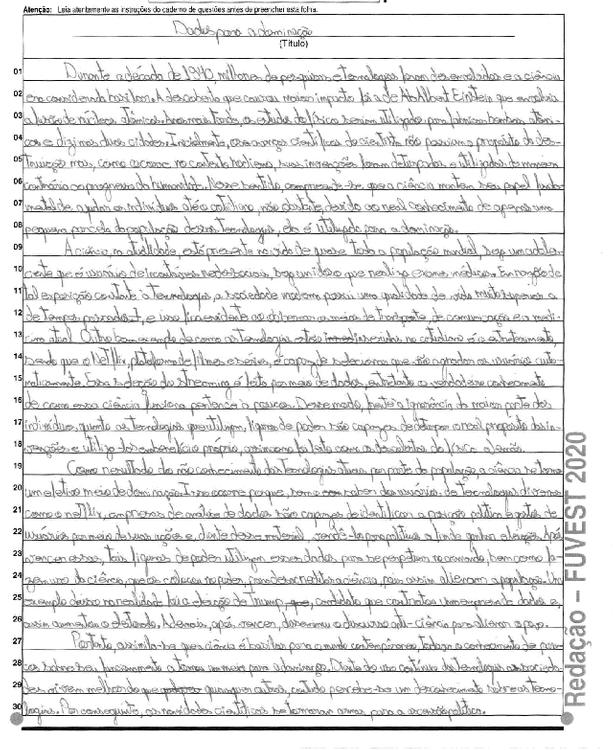 Atenção: Leia atentamente as instruções do caderno de questões antes de preencher esta folha.
Dados para a dominação
(Título)
01 Durante a década de 1940, milhares de pesquisas e tecnologias foram desenvolvidas e a ciência
02 era considerada basilar. A descoberta que causou maior impacto foi a de Albert Einstein que envolvia
03 a fusão de núcleos atômicos, mais tarde, os estudos do físico seriam utilizados para fabricar bombas atômi-
04 cas e dizimar duas cidades. Inicialmente, os avanços científicos do cientista não possuíam o propósito de des-
05 truição mas, como ocorre no contexto hodierno, suas invenções foram deturpadas e utilizadas de maneira
06 contrária ao progresso da humanidade. Nesse sentido, compreende-se que a ciência mantém seu papel funda-
07 mental de ajudar os indivíduos até o cotidiano, não obstante, devido ao real conhecimento de apenas uma
08 pequena parcela da população dessas tecnologias, ela é utilizada para a dominação.
09 A ciência, na atualidade, está presente na vida de quase toda a população mundial, seja um adoles-
10 cente que é usuário de redes sociais, seja um idoso que realiza exames médicos. Em razão de
11 tal exposição constante à tecnologia, a sociedade moderna possui uma qualidade de vida muito superior a
12 de tempos passados, e isso fica evidente ao os meios de transporte, de comunicação e a medi-
13 cina atual. Outro bom exemplo de como as tecnologias estão inseridas no cotidiano é o entretenimento,
14 sendo que a Netflix, plataforma de filmes e séries, é capaz de selecionar o que irá agradar os usuários auto-
15 maticamente. Essa seleção do streaming é feita por meio de dados, entretanto o verdadeiro conhecimento
16 de como essa ciência funciona pertence a poucos. Desse modo, frente à ignorância da maior parte dos
17 indivíduos quanto as tecnologias que utilizam, figuras de poder são capazes de deturpar o real propósito das in-
18 venções e utilizá-las em benefício próprio, assim como foi feito com as descobertas do físico alemão.
19 Como resultado do não conhecimento das tecnologias atuais por parte da população, a ciência se torna
20 um efetivo meio de dominação. Isso ocorre porque, com os dados dos usuários de tecnologias diversas
21 como a netflix, empresas de análise de dados são capazes de identificar a posição política e gostos de
22 usuários por meio de suas ações e, diante desse material, vendê-los para políticos a fim de ganhar eleições. Após
23 vencer essas, tais figuras de poder utilizam esses dados para se perpetuar no comando, bem como fa-
24 zem uso da ciência, que os colocou no poder, para desacreditar a ciência, para assim alienarem a população. Um
25 exemplo disso na realidade foi a eleição de Trump, candidato que contratou uma empresa de dados e,
26 assim aumentou o eleitorado. Ademais, após vencer, disseminou o discurso anti-ciência para alienar o povo.
27 Portanto, assimila-se que a ciência é basilar para o mundo contemporâneo, todavia o conhecimento de pou-
28 cos sobre ela, a torna um meio para a dominação. Diante do uso contínuo da tecnologia as socieda-
29 des vivem melhor do que quaisquer outras, contudo percebe-se um desconhecimento sobre as tecno-
30 logias. Por conseguinte, as novidades científicas se tornaram armas para a ascensão política.
Redação – FUVEST 2020